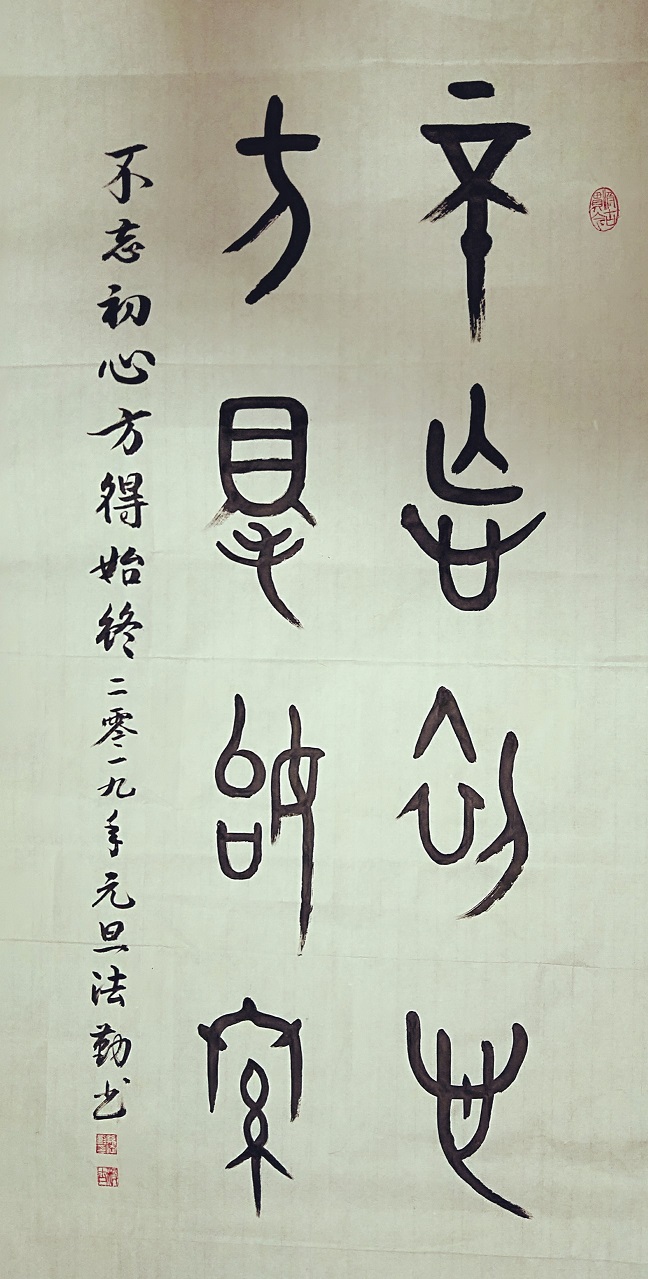 不忘初心
方得始终
不忘初心方得始终二零一九年元旦法勤书